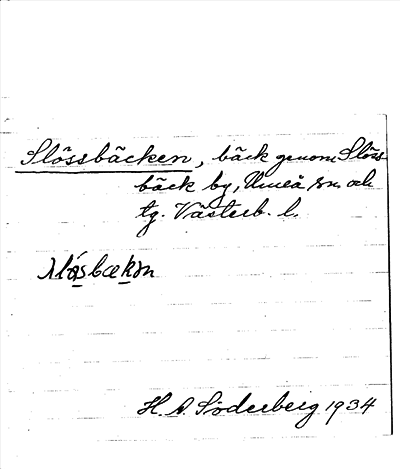 Slössbäcken, bäck genom Slöss
bäck by, Umeå sn och
tg. Västerb. l.
H. A. Söderberg 1934